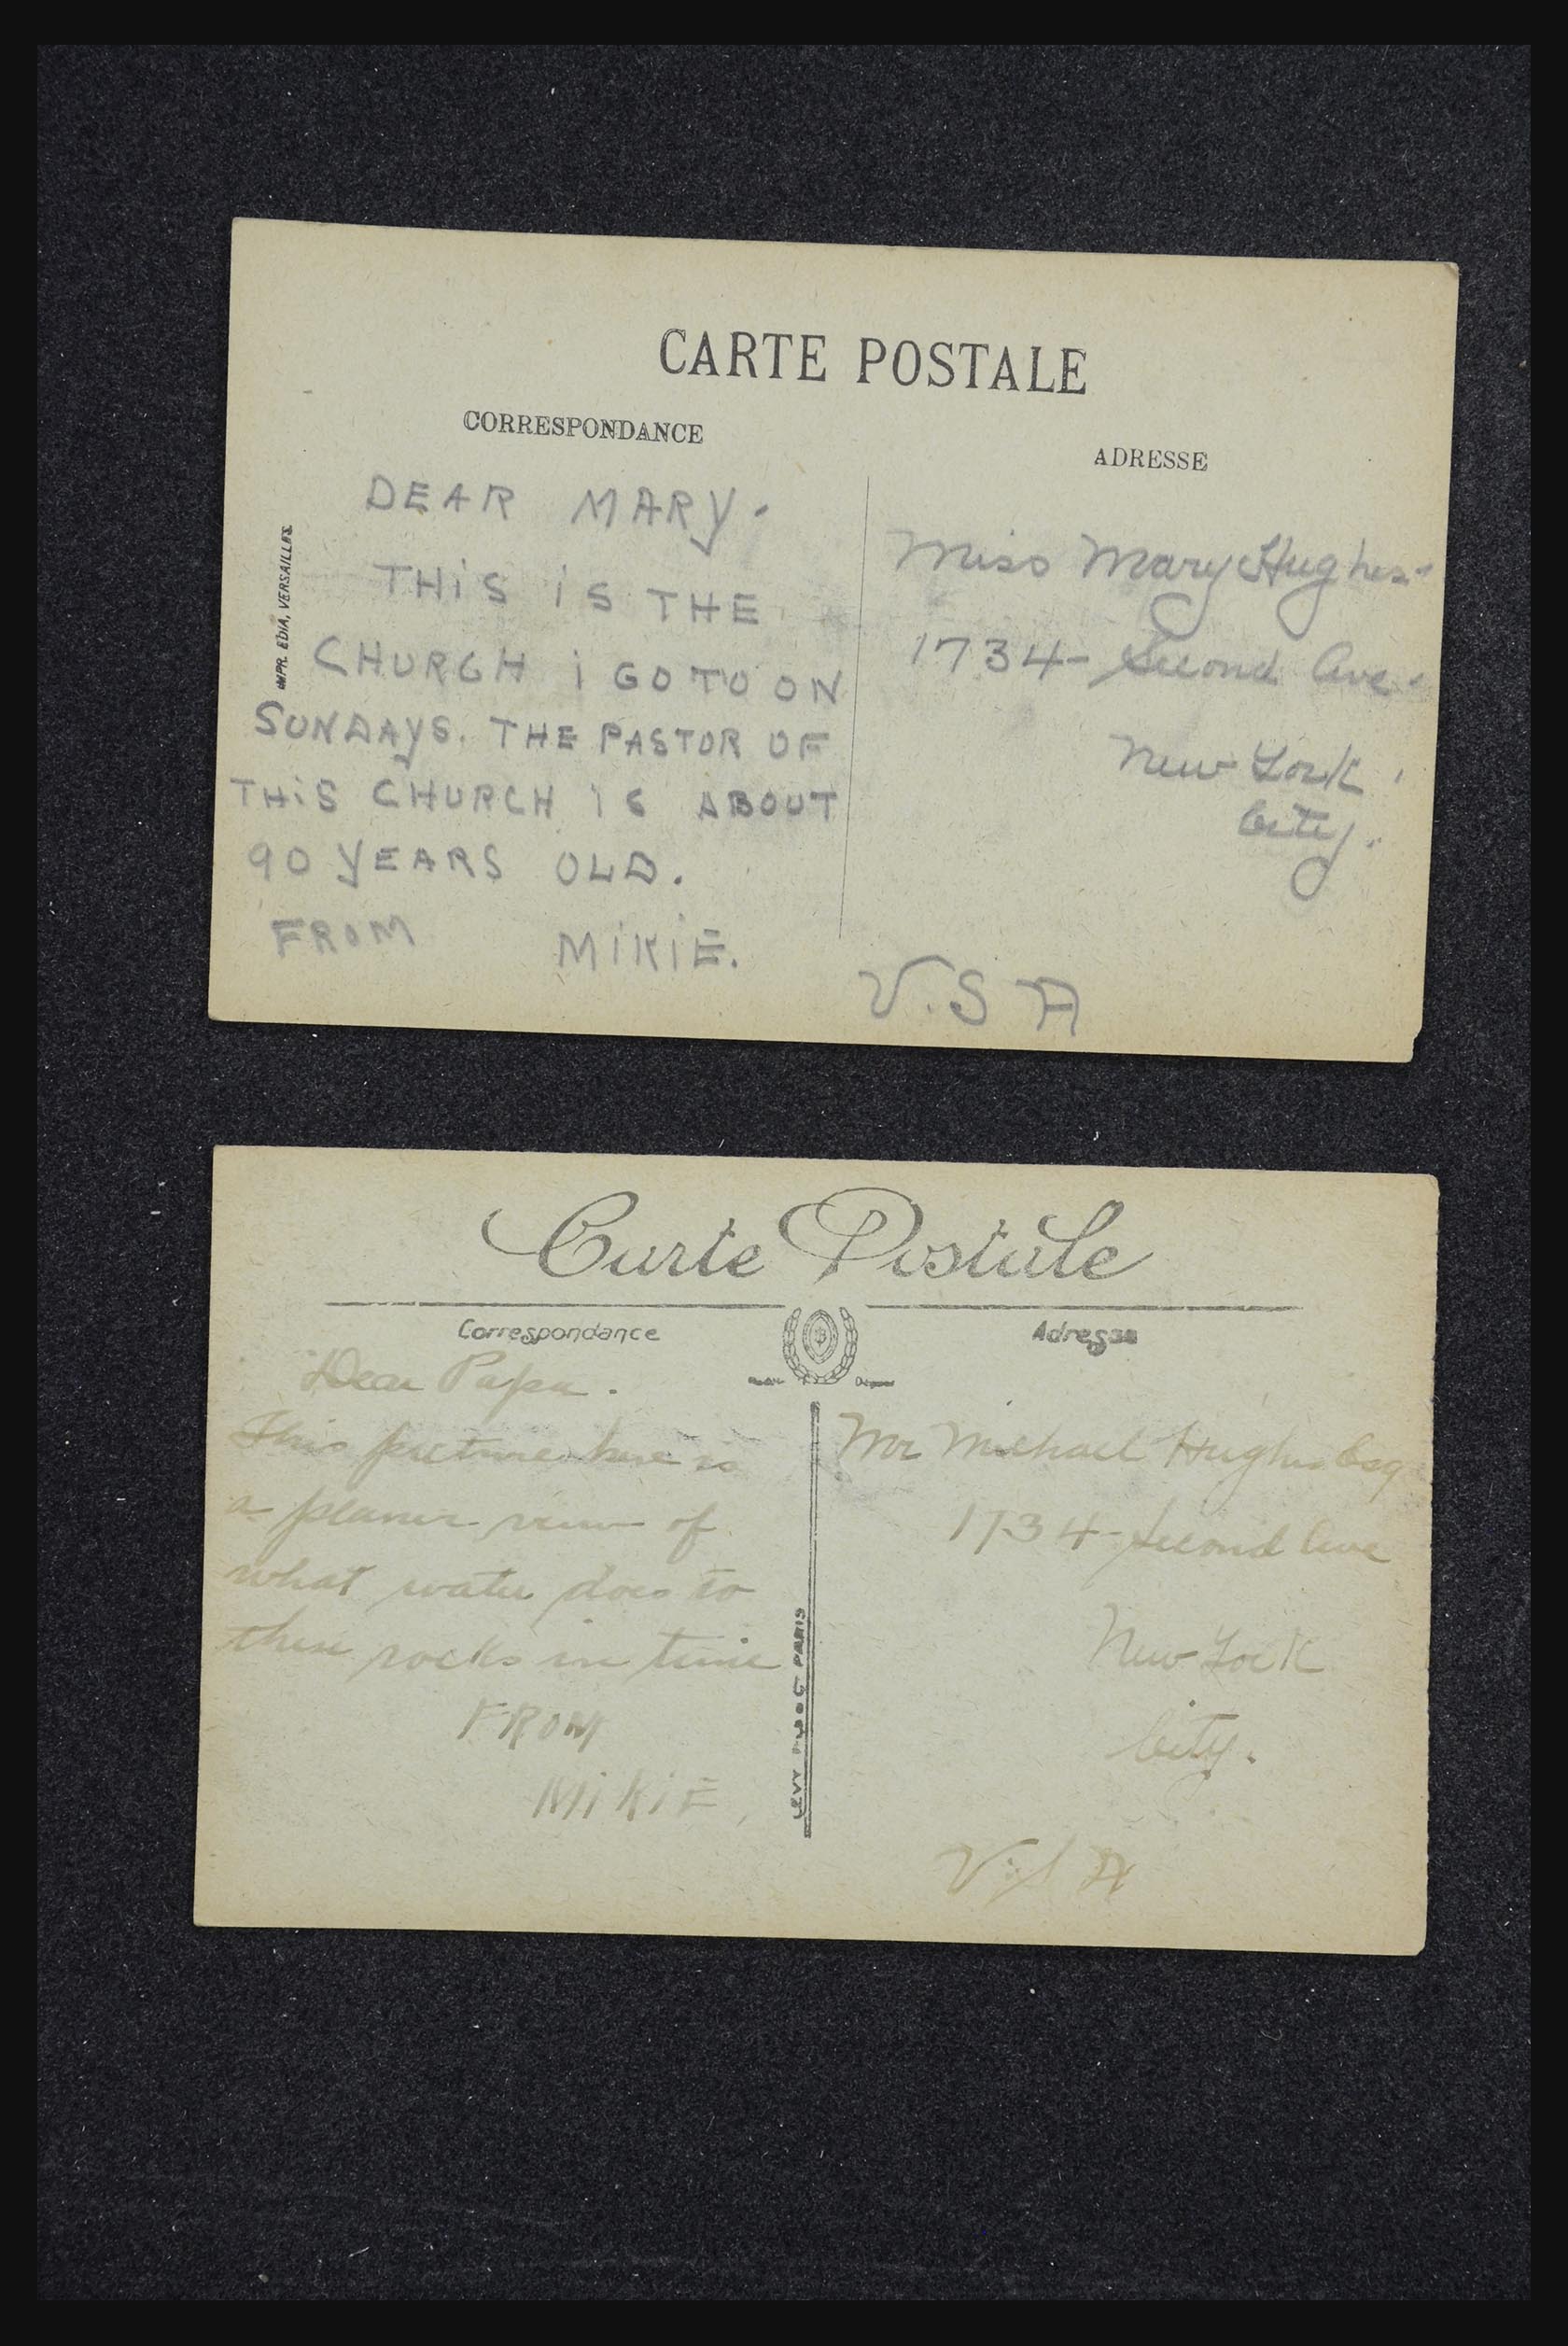 CARTE POSTALE
CORRESPONDANCE
ADRESSE
IMPR. EDIA, VERSAILLES
DEAR MARY.
THiS iS THE
CHURCH i GO TO ON
SUNDAYS. THE PASTOR OF
THiS CHURCH iS ABOUT
90 YEARS OLD.
FROM MiKiE.
Miss Mary Hughes
1734 - Second Ave.
New York
City.
U.S A
Carte Postale
Correspondance
Adresse
Dear Papa.
This picture here is
a planer view of
what water does to
these rocks in time
FROM
MiKiE,
PARIS
Mr Michael Hughes Esq
1734 - Second Ave
New York
City.
U.S A